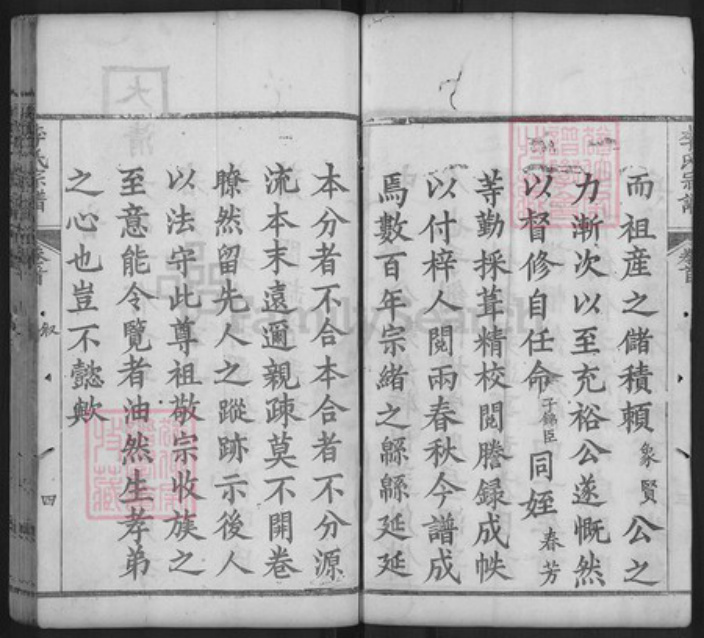 而祖產之儲積賴象賢公之
力漸次以至充裕公遂慨然
以督修自任命子錦臣同姪春芳
等勤採葺精校閱謄録成帙
以付梓人閱兩春秋今譜成
焉數百年宗緒之緜緜延延
本分者不合本合者不分源
流本末遠邇親疎莫不開卷
瞭然留先人之蹤跡示後人
以法守此尊祖敬宗收族之
至意能令覽者油然生孝弟
之心也豈不懿歟
李氏宗譜
卷首
叙
四
李氏宗譜
卷首
大清
FamilySearch